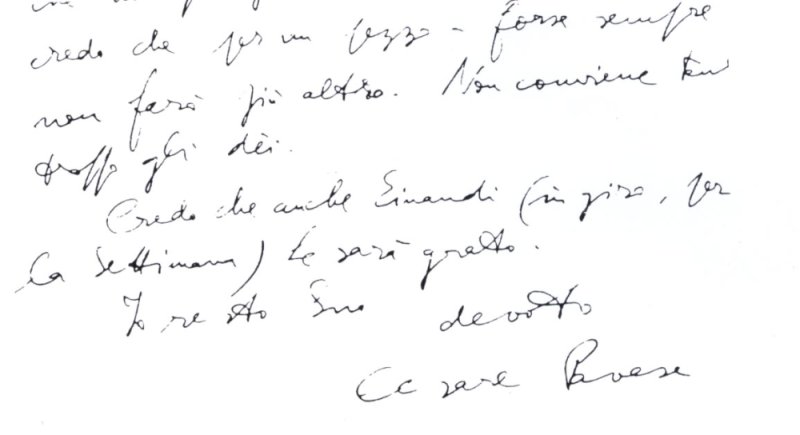 credo che per un pezzo – forse sempre
non farò più altro. Non conviene ten
troppo gli dèi.
Credo che anche Einaudi (in giro, per
la settimana) Le sarà grato.
Io resto Suo devoto
Cesare Pavese